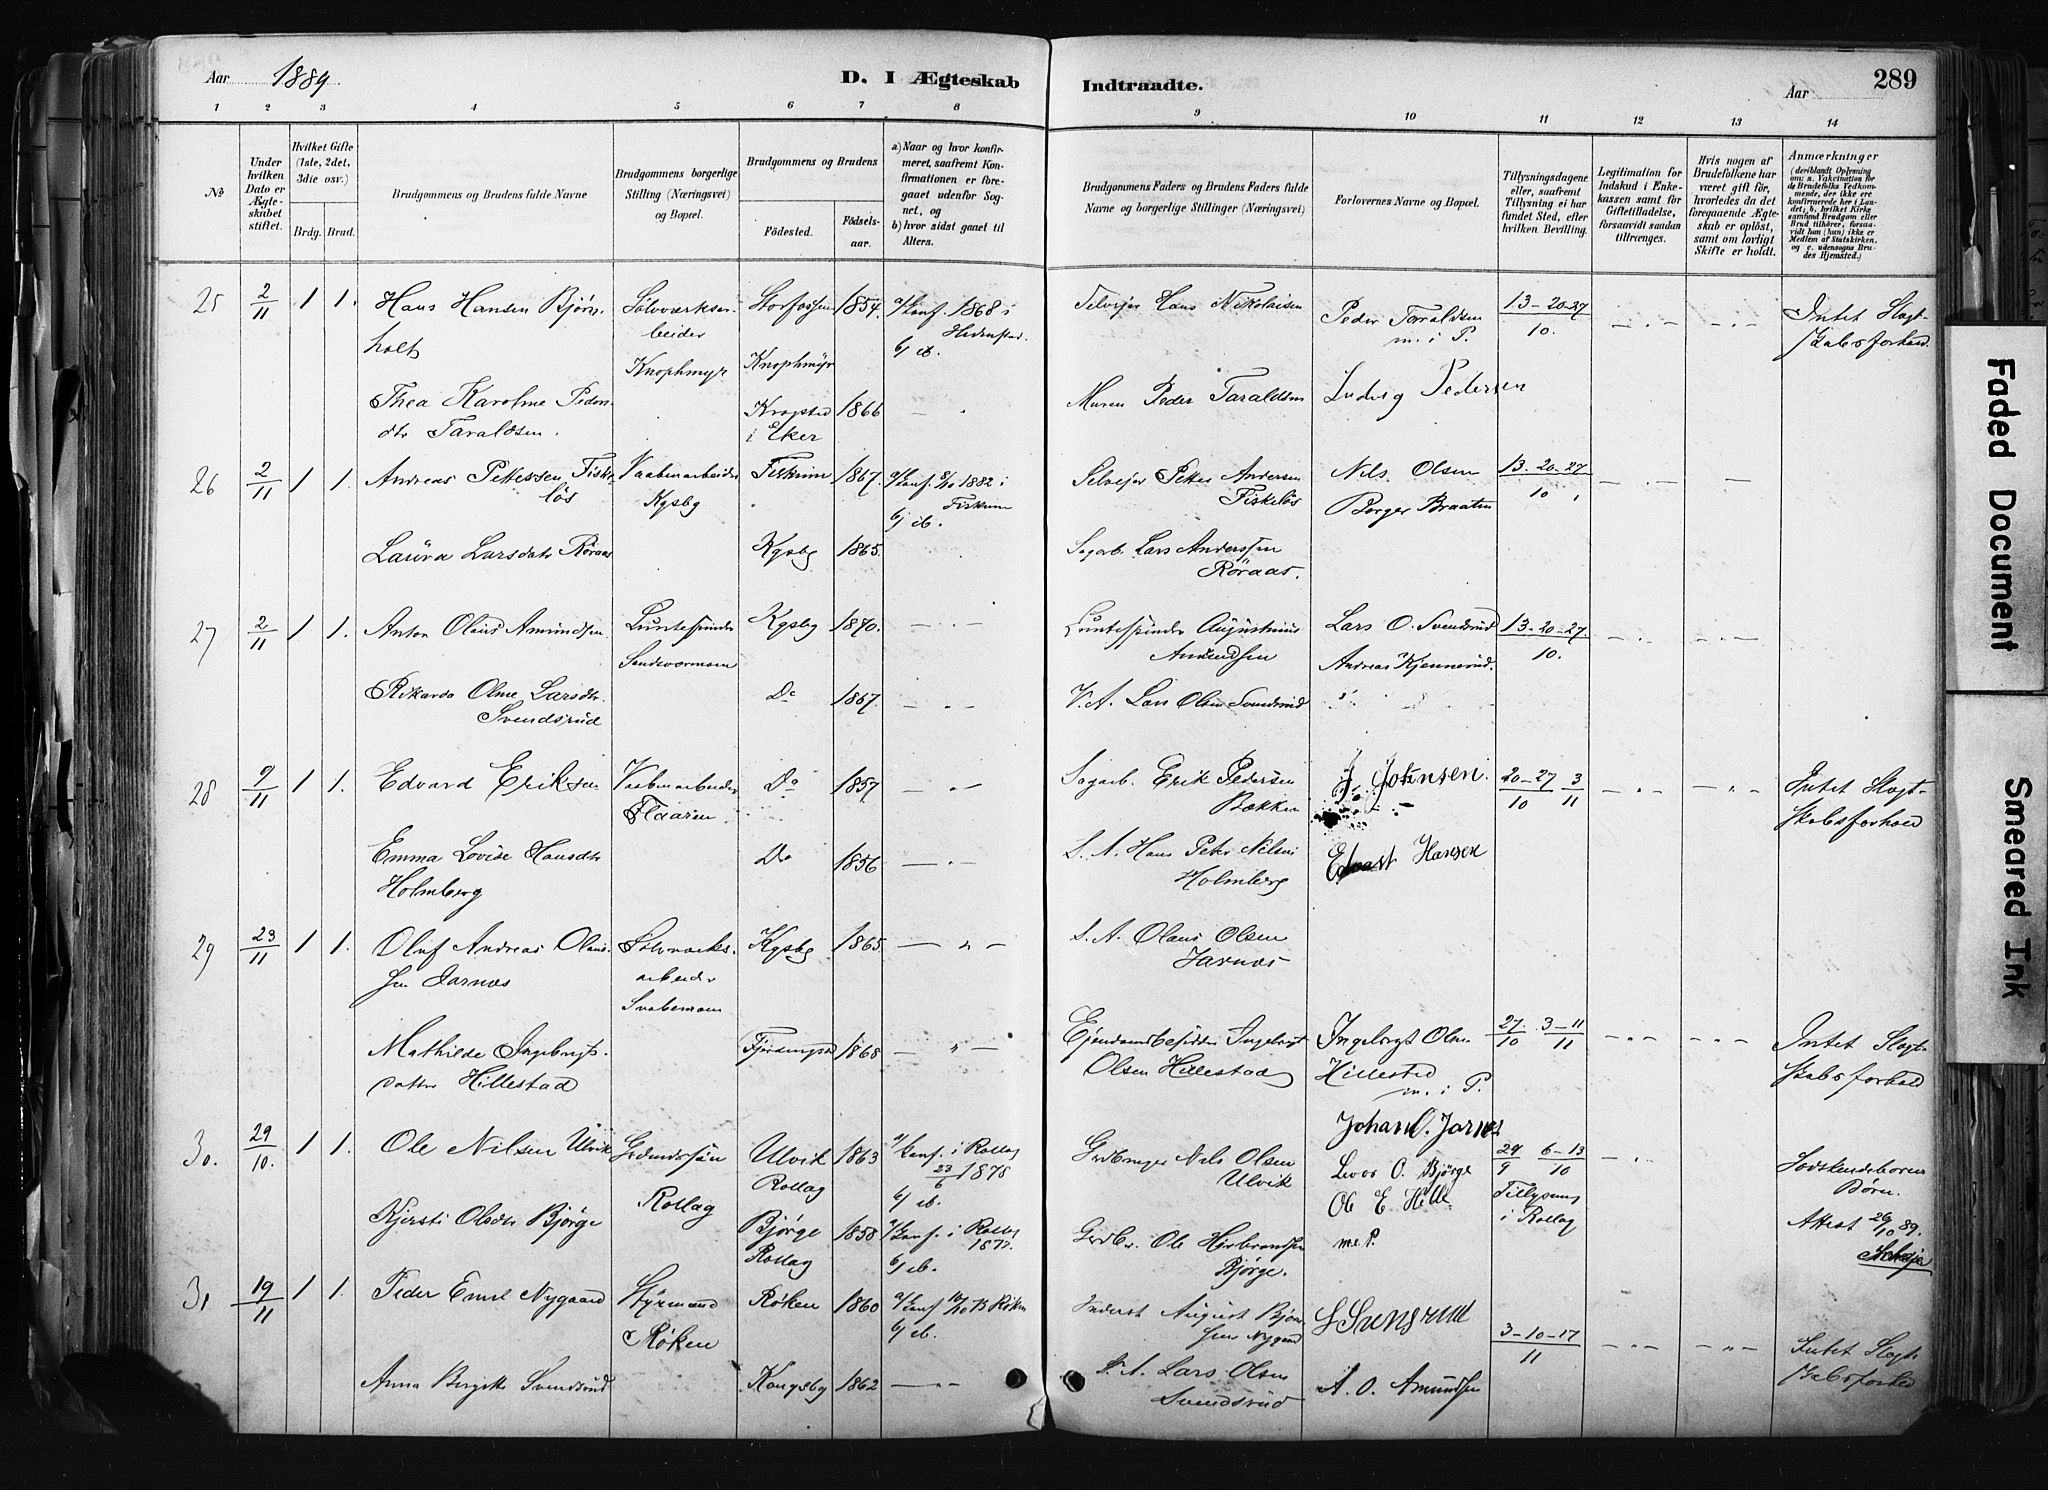 Aar 1889
D. I Ægteskab Indtraadte.
Aar
289
1 2 3 4 5 6 7 8 9 10 11 12 13 14
No
Under hvilken Dato er Ægteskabet stiftet.
Hvilket Gifte (1ste, 2det, 3die osv.)
Brdg. Brud.
Brudgommens og Brudens fulde Navne
Brudgommens borgerlige Stilling (Næringsvei) og Bopæl.
Brudgommens og Brudens
Fødested.
Fødselsaar.
a) Naar og hvor konfirmeret, saafremt Konfirmationen er foregaaet udenfor Sognet, og
b) hvor sidst gaaet til Alters.
Brudgommens Faders og Brudens Faders fulde Navne og borgerlige Stillinger (Næringsvei)
Forlovernes Navne og Bopæl.
Tillysningsdagene eller, saafremt Tillysning ei har fundet Sted, efter hvilken Bevilling.
Legitimation for Indskud i Enkekassen samt for Giftetilladelse, forsaavidt saadan tiltrænges.
Hvis nogen af Brudefolkene har været gift før, hvorledes da det foregaaende Ægteskab er opløst, samt om lovligt Skifte er holdt.
Anmærkninger (deriblandt Oplysning om: a. Vakcination for de Brudefolks Vedkommende, der ikke ere konfirmerede her i Landet; b. hvilket Kirkesamfund Brudgom eller Brud tilhører, forsaavidt han (hun) ikke er Medlem af Statskirken, og c. udensogns Brudes Hjemsted.)
25 2/11 1 1. Hans Hansen Bjørnholt
Sølvverksarbeider Knophmyr
Storfossen 1854. a/ Konf. 1868 i Hedenstad. b/ ib.
Knophmyr
Selveier Hans Nikolaisen
Peder Taraldsen m. i P.
13-20-27/10.
Intet Slægtskabsforhold
Thea Karoline Pedersdtr Taraldsen.
Krogstad i Eker 1866
Murer Peder Taraldsen
Ludvig Pedersen
26 2/11 1 1. Andreas Pettersen Fiskeløs
Vaabenarbeider Kgsbg
Fiskum 1867. a/ Konf. 8/10 1882 i Fiskum b/ ib.
Selveier Petter Andersen Fiskeløs
Nils Olsen
Borger Braaten
13-20-27/10
Laura Larsdatr Røraas
Kgsbg 1865.
Sagarb. Lars Anderssen Røraas.
27 2/11 1 1. Anton Olaus Amundsen
Luntespinder Sandsværmoen
Kgsbg 1870.
Luntespinder Augustinus Amundsen
Lars O. Svendsrud
Andreas Kjennerud.
13-20-27/10.
Rikarda Oline Larsdtr. Svendsrud
Do 1867.
V. A. Lars Olsen Svendsrud
28 9/11 1 1. Edvard Eriksen
Vaabenarbeider Flaaren
Do 1857
Sagarb. Erik Pedersen Bækken
J. Johnsen.
20-27/10 3/11
Intet Slægtskabsforhold
Emma Lovise Hansdtr Holmberg
Do 1856
S. A. Hans Peter Nilsen Holmberg
Edvart Hansen
29 23/11 1 1. Oluf Andreas Olaussen Jarnæs
Sølvverksarbeider Svabensmoen
Kgsbg 1865.
S. A. Olaus Olsen Jarnæs
Mathilde Ingebrigtsdatter Hillestad
1868
Eiendomsbesidder Ingebrigt Olsen Hillestad
Ingebrigt Olsen Hillestad m. i P.
Johan O. Jarnes
27/10 3-11/11
Intet Slægtskabsforhold
30. 29/10. 1 1. Ole Nilsen Ulvik
Grdmandssøn Rollag
Ulvik Rollag 1863 a/ Konf. i Rollag 23/6 1878 b/ ib.
Grdbruger Nils Olsen Ulvik
O. Bjørge
Ole E Hille
m. P.
29/9 6-13/10
Tillysning i Rollag
Sødskendebørns Børn.
Attest 26/10 89.
Kjersti Olsdtr Bjørge
Bjørge Rollag 1858 a/ Konf. i Rollag 1872. b/ ib.
Grdbr. Ole Herbrandsen Bjørge.
31 19/11 1 1. Peder Emil Nygaard
Styrmand Røken
Røken 1860 a/ Konf Røken b/ ib.
Inderst August Bjørnsen Nygaard
L Svensrud
3-10-17/11
Intet Slægtskabsforhold
Anna Birgitte Svendsrud
Kongsbg 1862
V. A. Lars Olsen Svendsrud
A. O. Amundsen
Faded Document
Smeared Ink